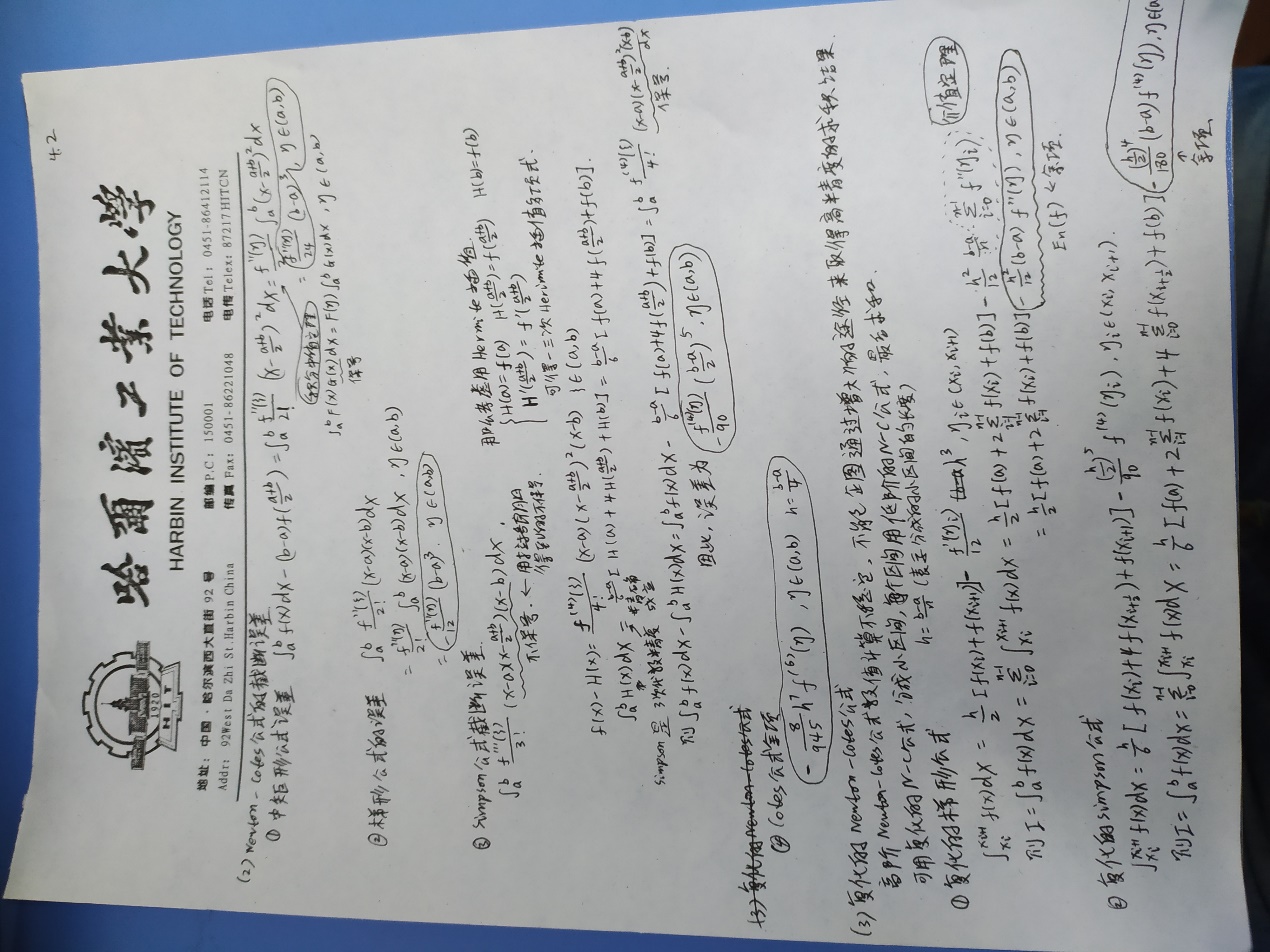 4.2
1920
HIT
哈爾濱工業大學
HARBIN INSTITUTE OF TECHNOLOGY
地址：中国·哈尔滨西大直街 92 号 邮编 P.C：150001 电话 Tel：0451-86412114
Addr：92West Da Zhi St.Harbin China 传真 Fax：0451-86221048 电传 Telex：87217 HITCN
(2) Newton-Cotes公式的截断误差
① 中矩形公式误差 ∫_a^b f(x)dx - (b-a)f((a+b)/2) = ∫_a^b f''(ξ)/2! (x-(a+b)/2)^2 dx = f''(η)/2! ∫_a^b (x-(a+b)/2)^2 dx
= f''(η)/24 (b-a)^3, η∈(a,b)
积分中值定理
∫_a^b F(x)G(x)dx = F(η)∫_a^b G(x)dx, η∈(a,b)
保号
② 梯形公式的误差 ∫_a^b f''(ξ)/2! (x-a)(x-b)dx
= f''(η)/2! ∫_a^b (x-a)(x-b)dx, η∈(a,b)
= -f''(η)/12 (b-a)^3. η∈(a,b)
③ Simpson公式截断误差.
∫_a^b f'''(ξ)/3! (x-a)(x-(a+b)/2)(x-b)dx,
不保号.
那么考虑用Hermite插值.
H(a)=f(a) H((a+b)/2)=f((a+b)/2) H(b)=f(b)
H'((a+b)/2)=f'((a+b)/2)
可得一三次Herimite插值多项式.
f(x)-H(x)= f^(4)(ξ)/4! (x-a)(x-(a+b)/2)^2(x-b) ξ∈(a,b)
∫_a^b H(x)dx = (b-a)/6 [H(a)+4H((a+b)/2)+H(b)] = (b-a)/6 [f(a)+4f((a+b)/2)+f(b)].
Simpson是3次代数精度 精确成立
则∫_a^b f(x)dx-∫_a^b H(x)dx=∫_a^b f(x)dx - (b-a)/6 [f(a)+4f((a+b)/2)+f(b)] = ∫_a^b f^(4)(ξ)/4! (x-a)(x-(a+b)/2)^2(x-b)dx
保号.
因此, 误差为 -f^(4)(η)/90 ((b-a)/2)^5, η∈(a,b)
(3) 复化的Newton-Cotes公式
④ Cotes公式余项
-8/945 h^7 f^(6)(η), η∈(a,b) h=(b-a)/4
(3) 复化的Newton-Cotes公式
高阶Newton-Cotes公式数值计算不稳定, 不能企图通过增大n的途径来取得高精度的求积结果.
可用复化的N-C公式, 分成小区间, 每个区间用低阶的N-C公式, 最后求和.
h=(b-a)/n (表示分成的小区间的长度)
① 复化的梯形公式
∫_{xi}^{xi+1} f(x)dx = h/2 [f(xi)+f(xi+1)] - f''(ηi)/12 h^3, ηi∈(xi,xi+1)
介值定理
则I=∫_a^b f(x)dx = Σ_{i=0}^{n-1} ∫_{xi}^{xi+1} f(x)dx = h/2 [f(a)+2Σ_{i=1}^{n-1} f(xi)+f(b)] - h^2/12 (b-a)/n Σ_{i=0}^{n-1} f''(ηi)
= h/2 [f(a)+2Σ_{i=1}^{n-1} f(xi)+f(b)] - h^2/12 (b-a) f''(η), η∈(a,b)
En(f) ← 余项.
② 复化的Simpson公式
∫_{xi}^{xi+1} f(x)dx = h/6 [f(xi)+4f(xi+1/2)+f(xi+1)] - (h/2)^5/90 f^(4)(ηi), ηi∈(xi,xi+1).
则I=∫_a^b f(x)dx = Σ_{i=0}^{n-1} ∫_{xi}^{xi+1} f(x)dx = h/6 [f(a)+2Σ_{i=1}^{n-1} f(xi)+4Σ_{i=0}^{n-1} f(xi+1/2)+f(b)] - (h/2)^4/180 (b-a) f^(4)(η), η∈(a
↑
余项